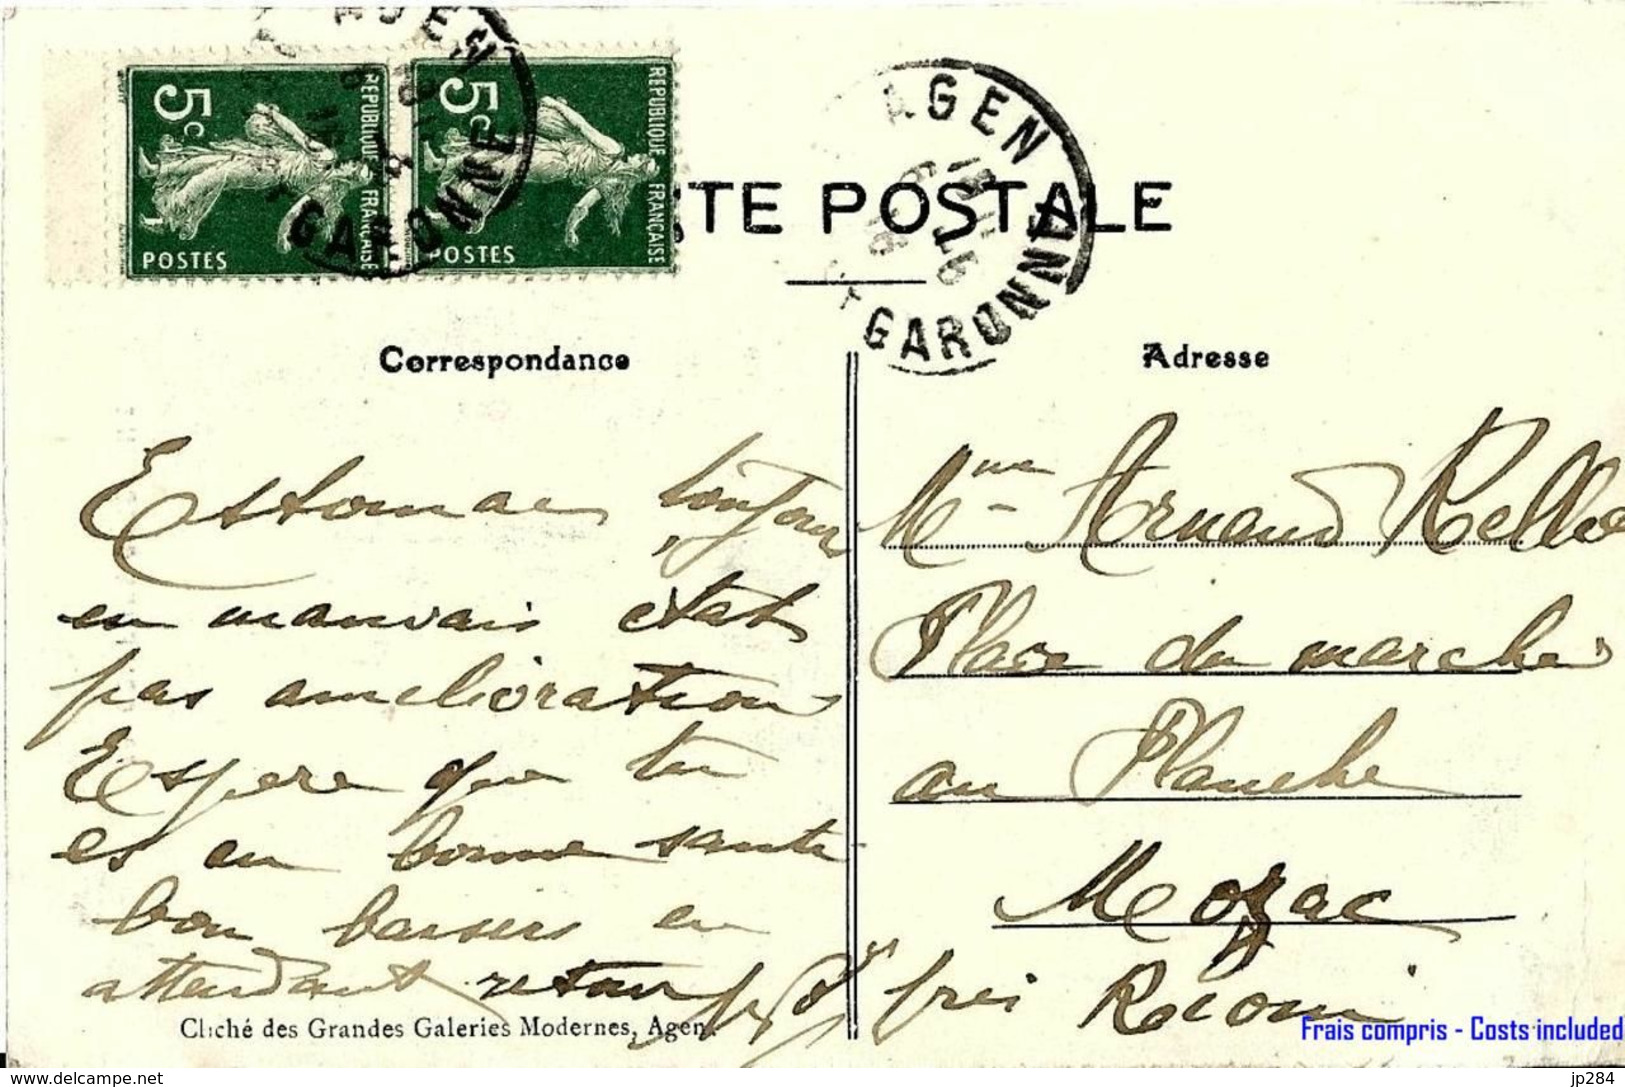 AGEN
GARONNE
5c
REPUBLIQUE FRANÇAISE
POSTES
5c
REPUBLIQUE FRANÇAISE
POSTES
TE POSTALE
AGEN
GARONNE
Correspondance
Estomac toujours
en mauvais etat
pas amelioration
Espere que tu
es en bonne sante
bon baisers en
attendant retour
Cliché des Grandes Galeries Modernes, Agen.
Adresse
Mme Arnaud
Place du marche
au Planche
Mozac
pres Riom
Frais compris - Costs included
www.delcampe.net
jp284